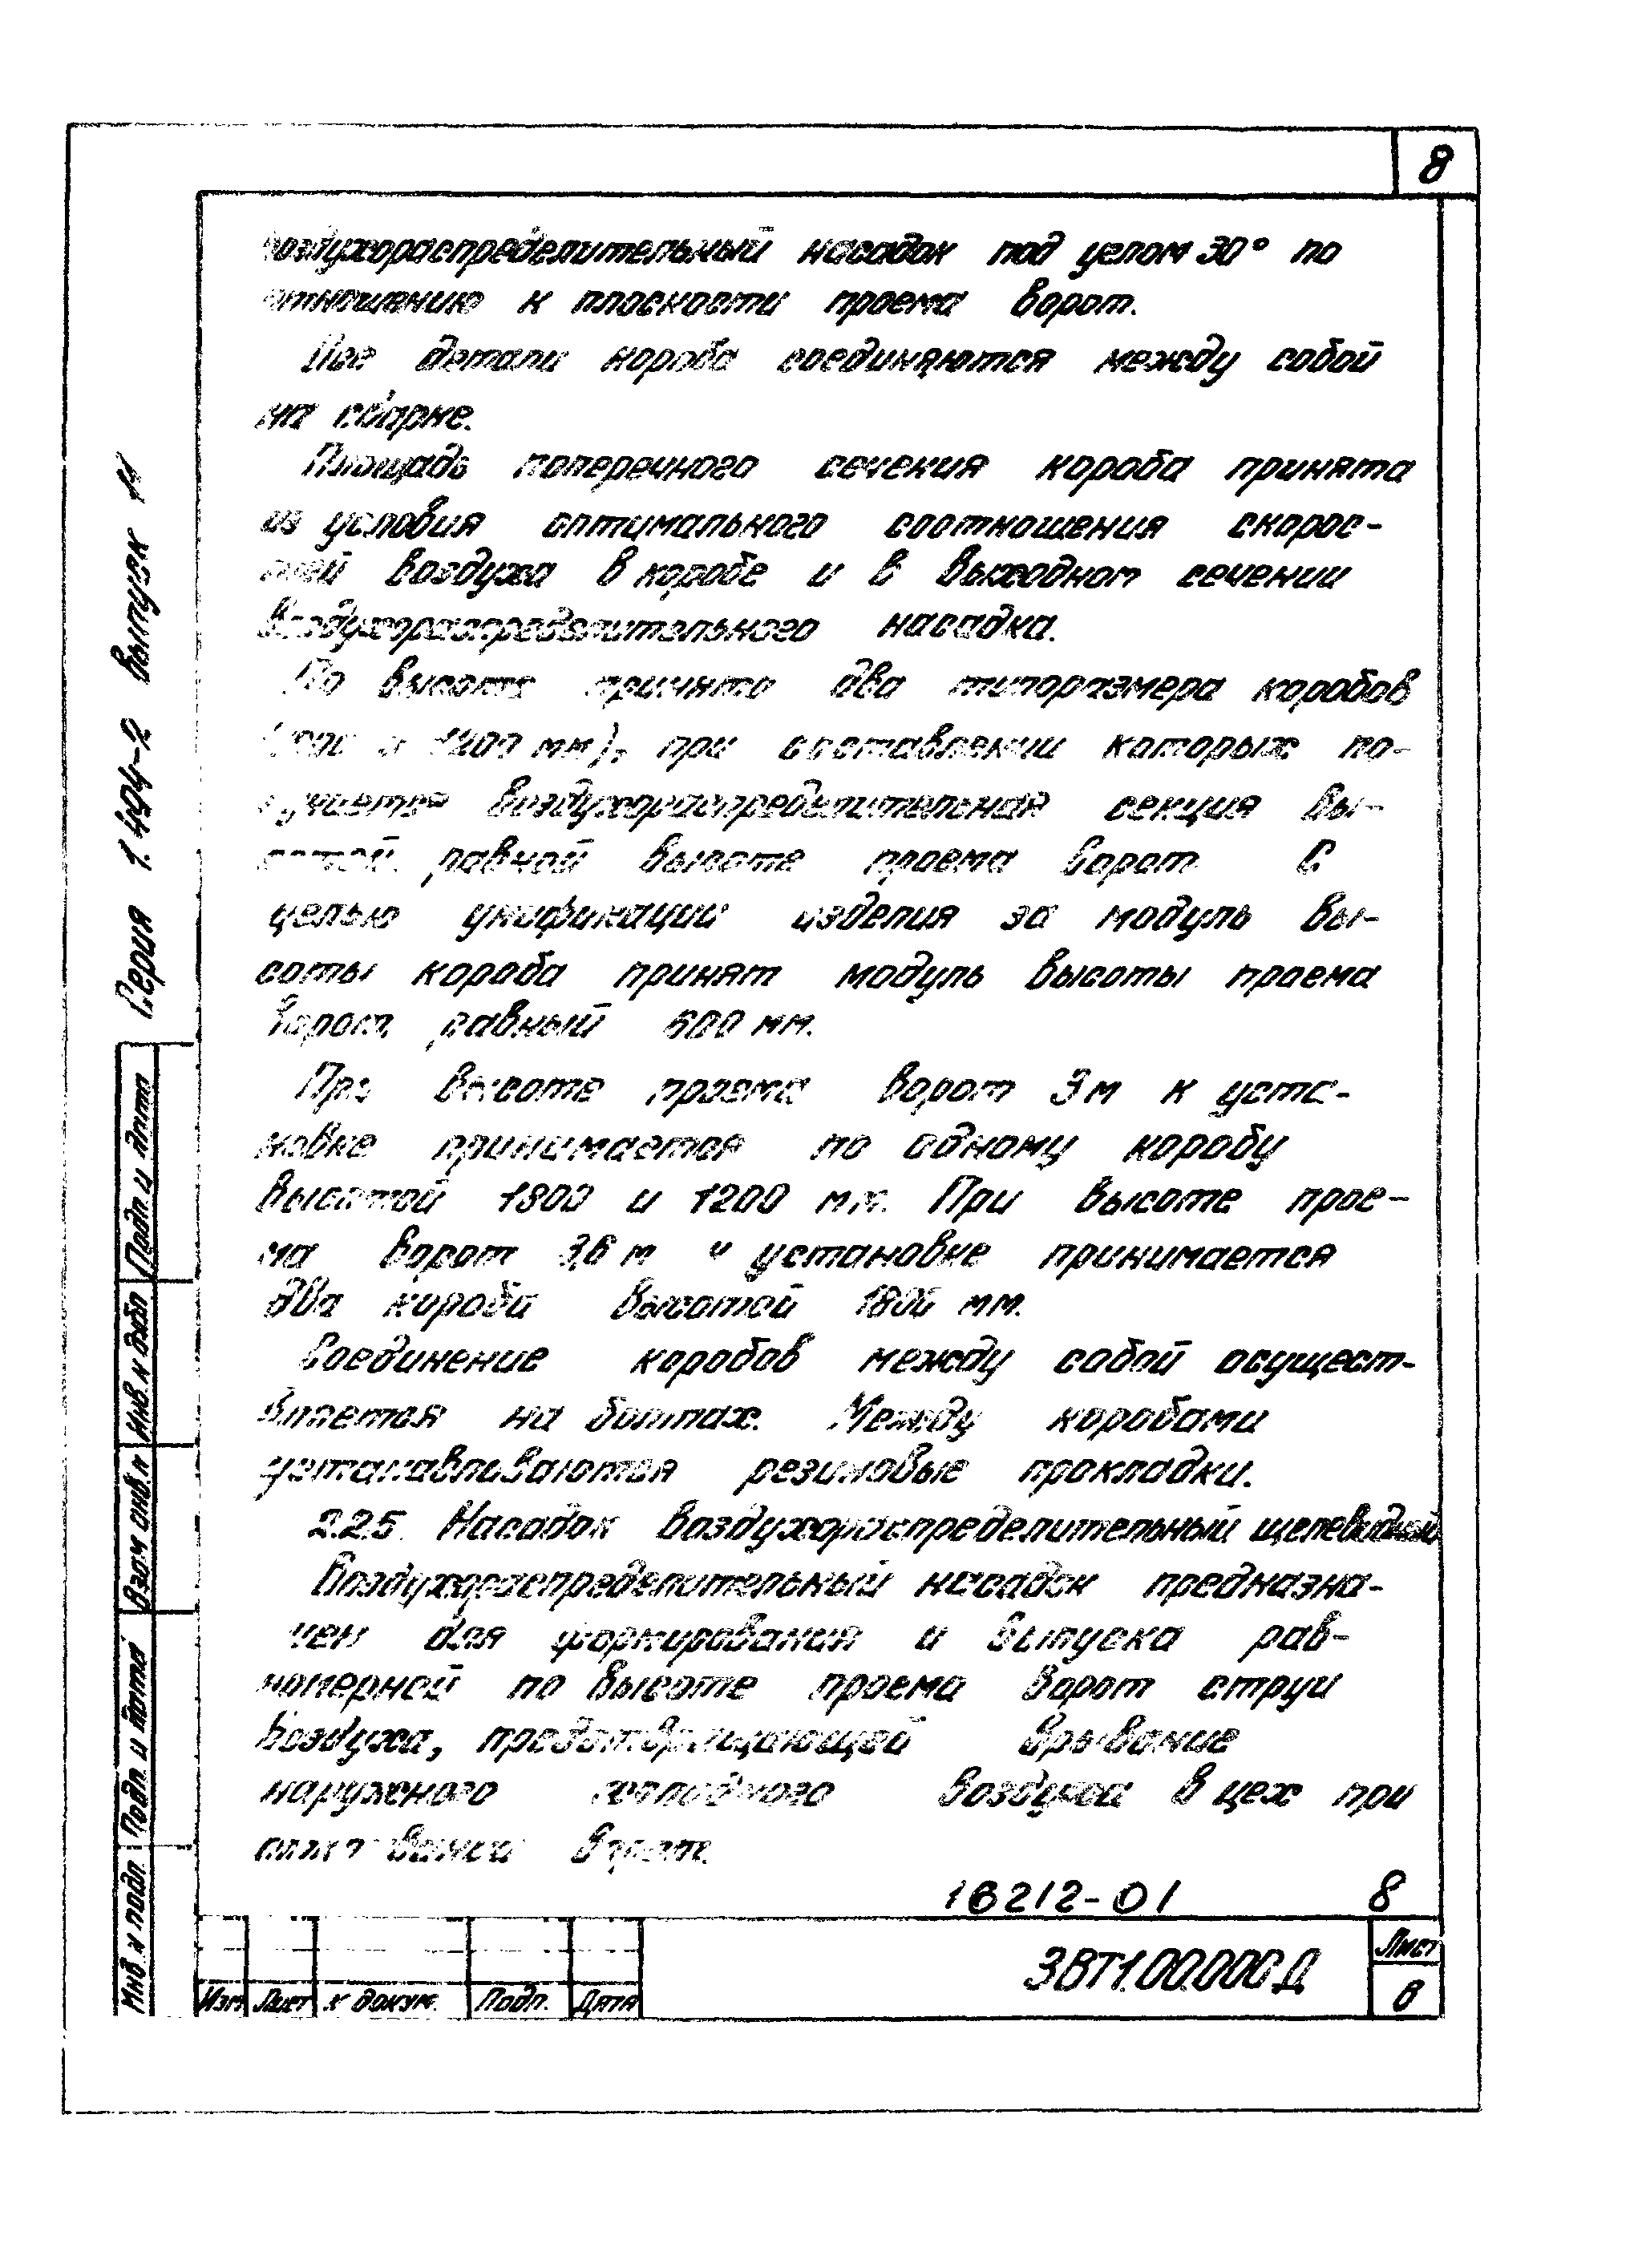 8
воздухораспределительный насадок под углом 30° по
отношению к плоскости проема ворот.
Все детали короба соединяются между собой
на сварке.
Площадь поперечного сечения короба принята
из условия оптимального соотношения скорос-
тей воздуха в коробе и в выходном сечении
воздухораспределительного насадка.
По высоте принято два типоразмера коробов
1200 мм), при составлении которых по-
лучается воздухораспределительная секция вы-
сотой, равной высоте проема ворот. С
целью унификации изделия за модуль вы-
соты короба принят модуль высоты проема
ворот, равный 600 мм.
При высоте проема ворот 3м к уста-
новке принимается по одному коробу
высотой 1800 и 1200 мм. При высоте прое-
ма ворот 3,6 м к установке принимается
два короба высотой 1800 мм.
Соединение коробов между собой осущест-
вляется на болтах. Между коробами
устанавливаются резиновые прокладки.
2.2.5. Насадок воздухораспределительный щелевидный
Воздухораспределительный насадок предназна-
чен для формирования и выпуска рав-
номерной по высоте проема ворот струи
воздуха, предотвращающей врывание
наружного холодного воздуха в цех при
ворот.
16212-01 8
3ВТ1.00.000Д
Лист
6
Изм Лист № докум. Подп. Дата
Серия 1.494-2 выпуск 1
Подп. и дата
Инв. № дубл
Взам. инв. №
Подп. и дата
Инв. № подл.